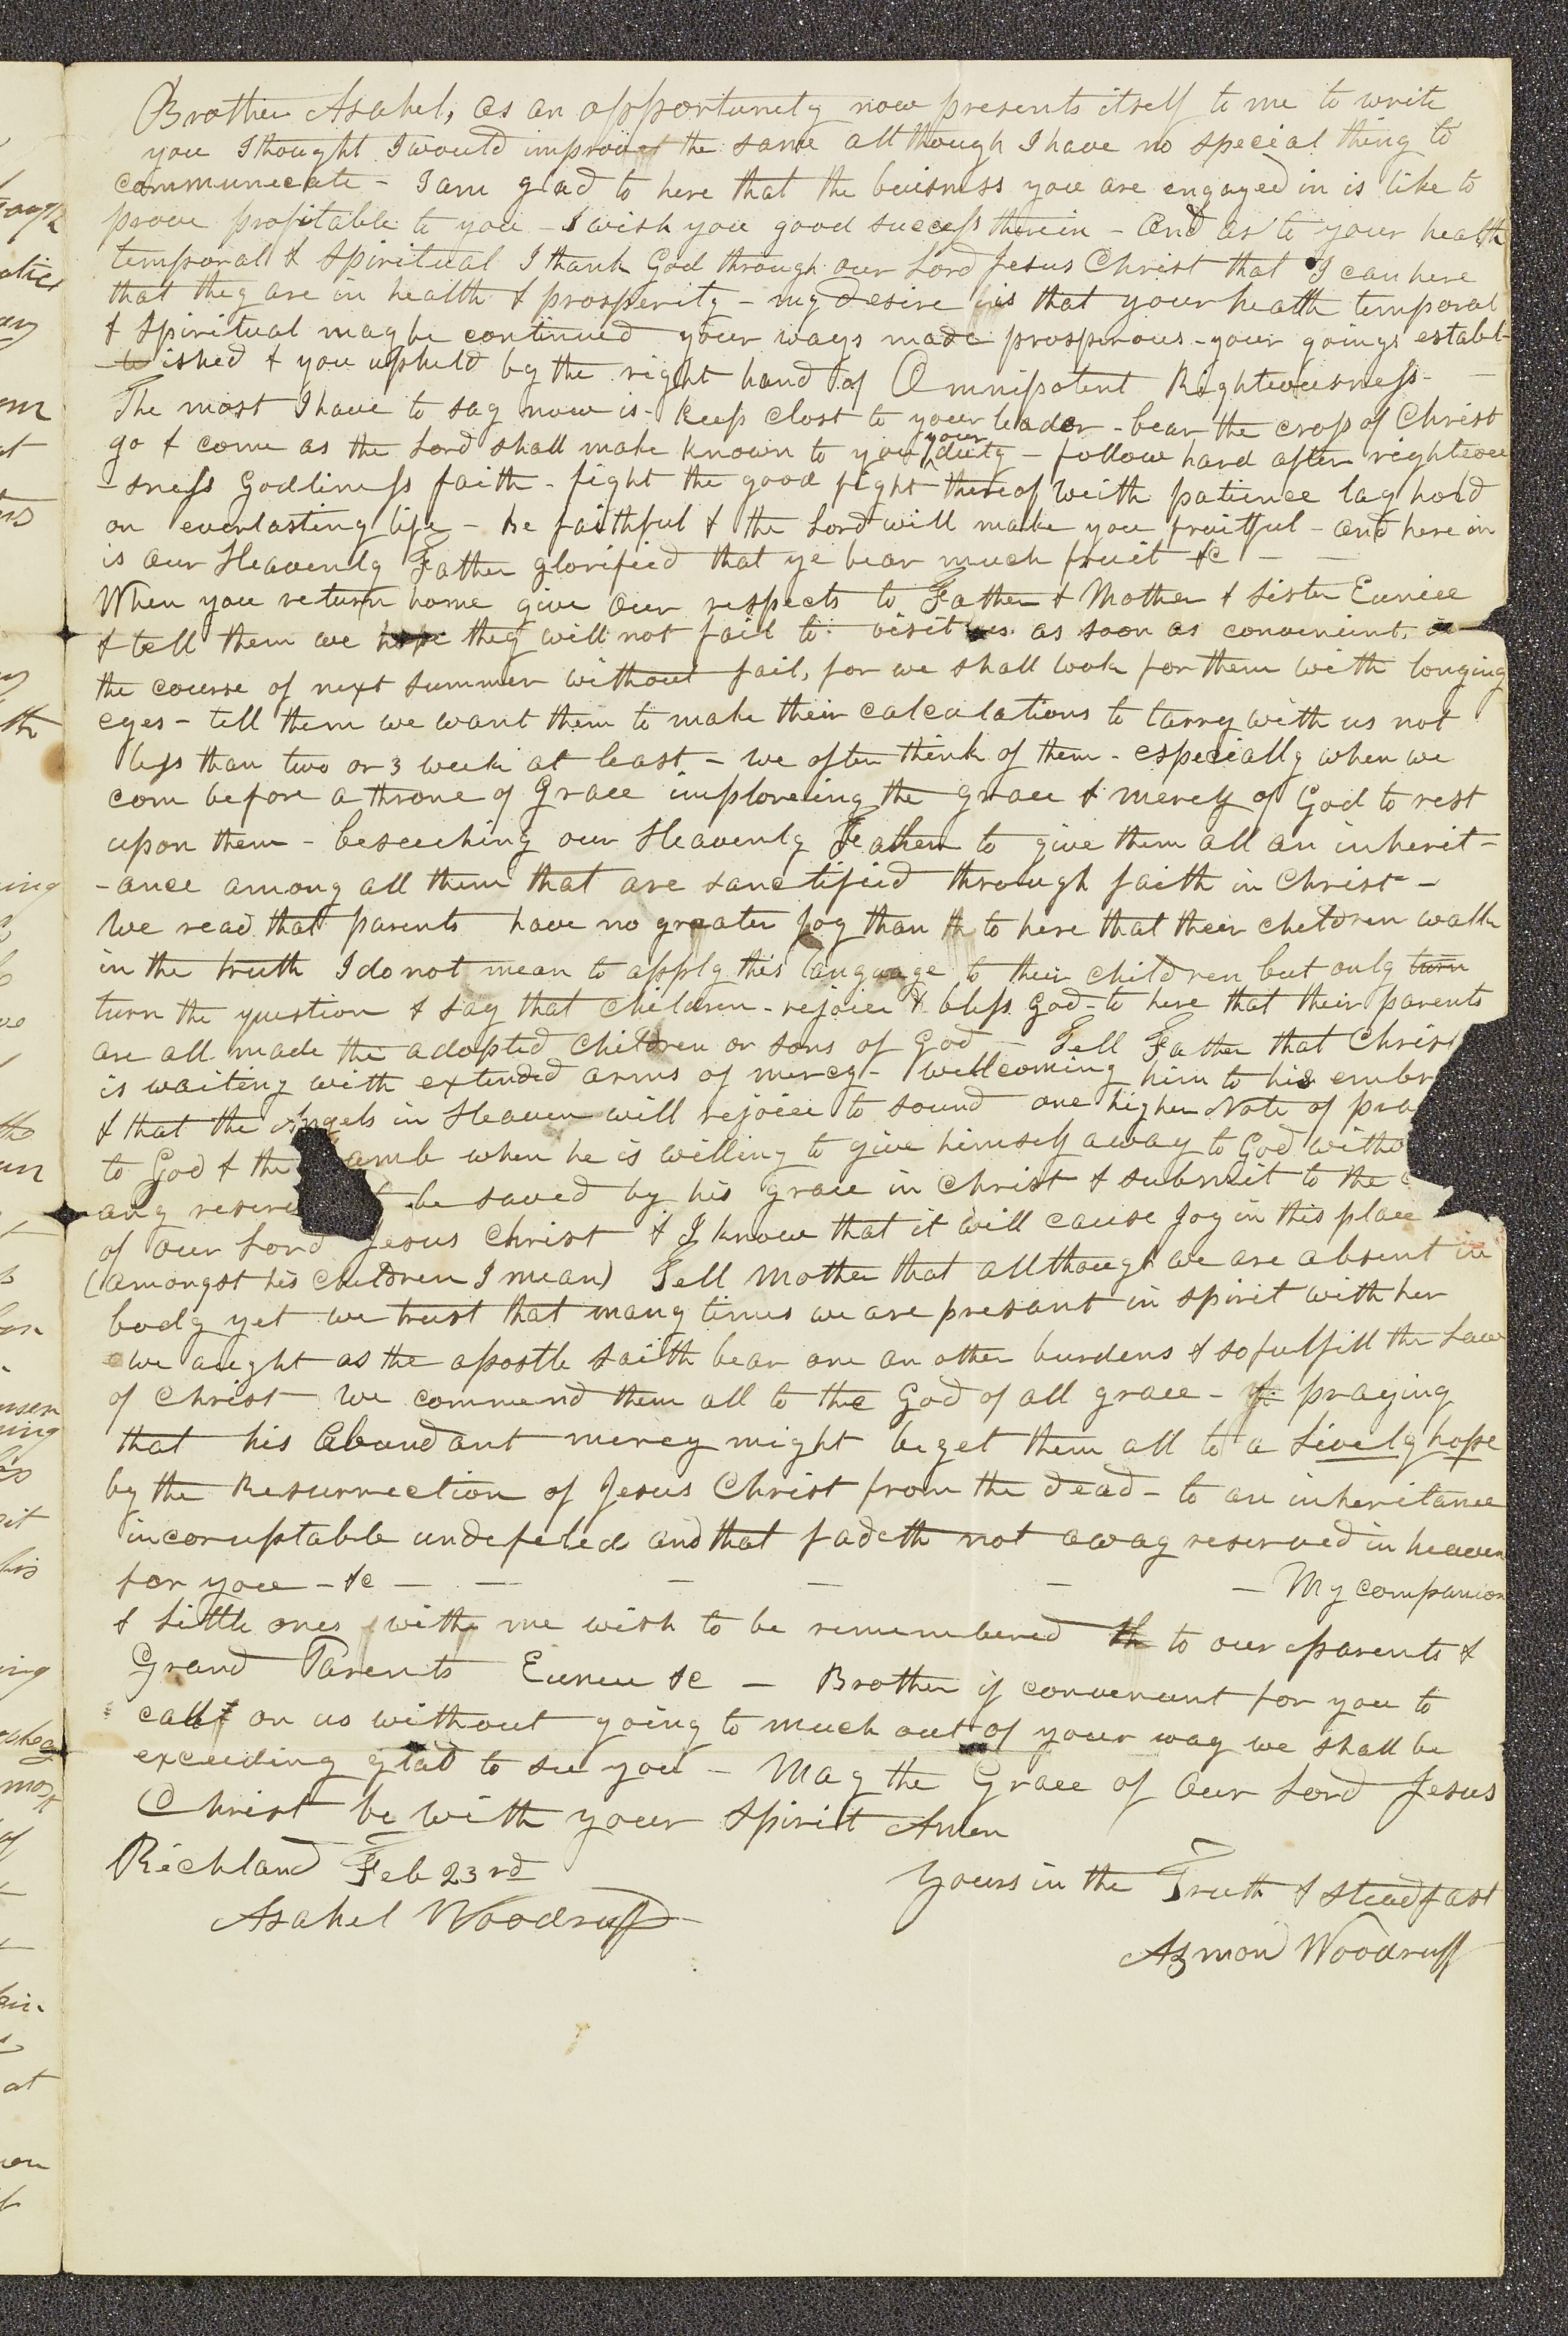 Brother Asahel, as an opportunety now presents itself to me to write
you I thought I would improve the same allthough I have no special thing to
communecate - I am glad to here that the buisness you are engaged in is like to
prove profitable to you - I wish you good success therein - and as to your health
temporal & Spiritual I thank God through our Lord Jesus Christ that I can here
that they are in health & prosperity - my desire is that your health temporal
& Spiritual may be continued your ways made prosperous - your goings establ-
ished & you upheld by the right hand of Omnipotent Righteousness -
The most I have to say now is - keep clost to your leader - bear the cross of Christ
go & come as the Lord shall make known to you your duty - follow hard after righteou
-sness Godliness faith - fight the good fight thereof with patience lay hold
on everlasting life - be faithful & the Lord will make you fruitful - and here in
is our Heavenly Father glorified that ye bear much fruit &c -
When you return home give our respects to Father & Mother & Sister Eunice
& tell them we hope they will not fail to visit us as soon as convenient, in
the course of next summer without fail, for we shall look for them with longing
eyes - tell them we want them to make their calculations to tarry with us not
less than two or 3 week at least - we often think of them - especially when we
com before a throne of Grace imploreing the grace & mercy of God to rest
upon them - beseeching our Heavenly Father to give them all an inherit-
-ance among all them that are sanctified through faith in Christ -
We read that parents have no greater joy than th to here that their children walk
in the truth I do not mean to apply this language to their children but only turn
turn the question & say that children - rejoice & bless God - to here that their parents
are all made the adopted children or sons of God - Tell Father that Christ
is waiting with extended arms of mercy - wellcoming him to his embr
& that the Angels in Heaven will rejoice to sound one higher Note of pra
to God & the amb when he is willing to give himself away to God witho
any reserve be saved by his grace in Christ & submit to the
of our Lord Jesus Christ & I know that it will cause joy in this place
(amongst his children I mean) Tell Mother that allthough we are absent in
body yet we trust that many times we are presant in spirit with her
we aught as the apostle saith bear one an other burdens & so fulfill the Law
of Christ We commend them all to the God of all grace - praying
that his abundant mercy might beget them all to a Lively hope
by the Resurrection of Jesus Christ from the dead - to an inheritance
incoruptable undefeled and that fadeth not away reserved in heaven
for you - &c - - - - - - My companion
& Little ones with me wish to be remembered th to our parents &
Grand Parents Eunice &c - Brother if convenient for you to
call on us without going to much out of your way we shall be
exceeding glad to see you - May the Grace of Our Lord Jesus
Christ be with your Spirit Amen
Richland Feb 23rd
Yours in the Truth & steadfast
Asahel Woodruff
Azmon Woodruff